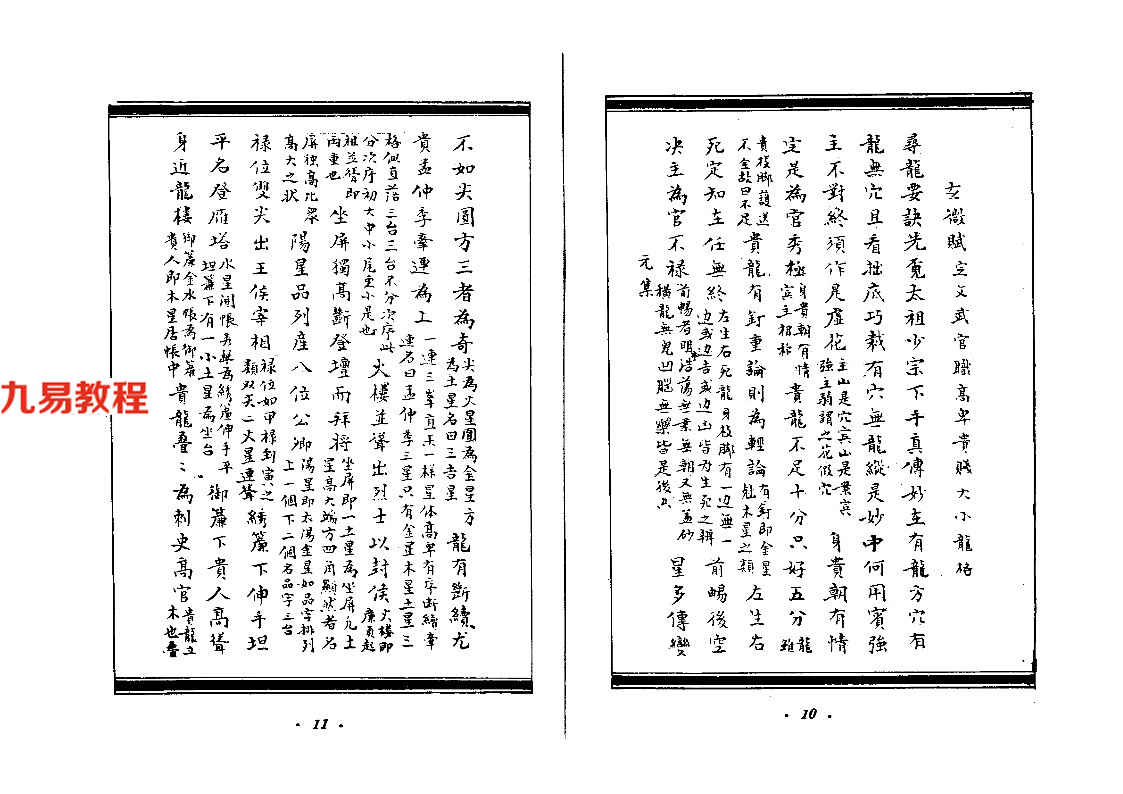 玄微賦定文武官職高卑貴賤大小龍格
尋龍要訣先覓太祖少宗下手真傳妙在有龍方穴有
龍無穴且看拙底巧栽有穴無龍縱是妙中何用賓強
主不對終須作是虛花主山是穴賓山是案賓強主弱謂之花假穴身貴朝有情
定是為官秀極身貴朝有情賓主相稱貴龍不足十分只好五分雖龍
貴枝脚護送不全故曰不足貴龍有釘重論則為輕論有釘即金星尅木星之類左生右
死定知在任無終左生右死龍身枝脚有一边無一边或边吉或边凶皆为生死之辨前暢後空
决主為官不祿前暢者明浩蕩無案無朝又無盖砂橫龍無鬼凹腦無樂皆是後空星多傳變
元集
10
不如尖圓方三者為奇尖為火星圓為金星方為土星名曰三吉星龍有斷續尤
貴孟仲季牽連為上一連三峯直玉一様星体高卑有序断續牽連名曰孟仲季三星只有金星木星土星三
格似直落三台三台不分次序此分次序初大中小尾至小是也火樓並聳出烈士以封侯火樓即廉貞起
祖並聳即両重也坐屏獨高斷登壇而拜將坐屏即一土星為坐屏凡土星高大端方四角顯然者名
屏独高比衆高大之状陽星品列産八位公卿陽星即太陽金星如品字排列上一個下二個名品字三台
禄位雙尖出王侯宰相禄位如甲禄到寅之類双尖二火星連聳綉簾下伸手坦
平名登雁塔水星開帳去舉為綉簾伸手平坦簾下有一小土星為坐台御簾下貴人高聳
身近龍樓御簾金水帳為御簾貴人即木星居帳中貴龍叠〻為刺史高官貴龍立木也叠
11
九易教程